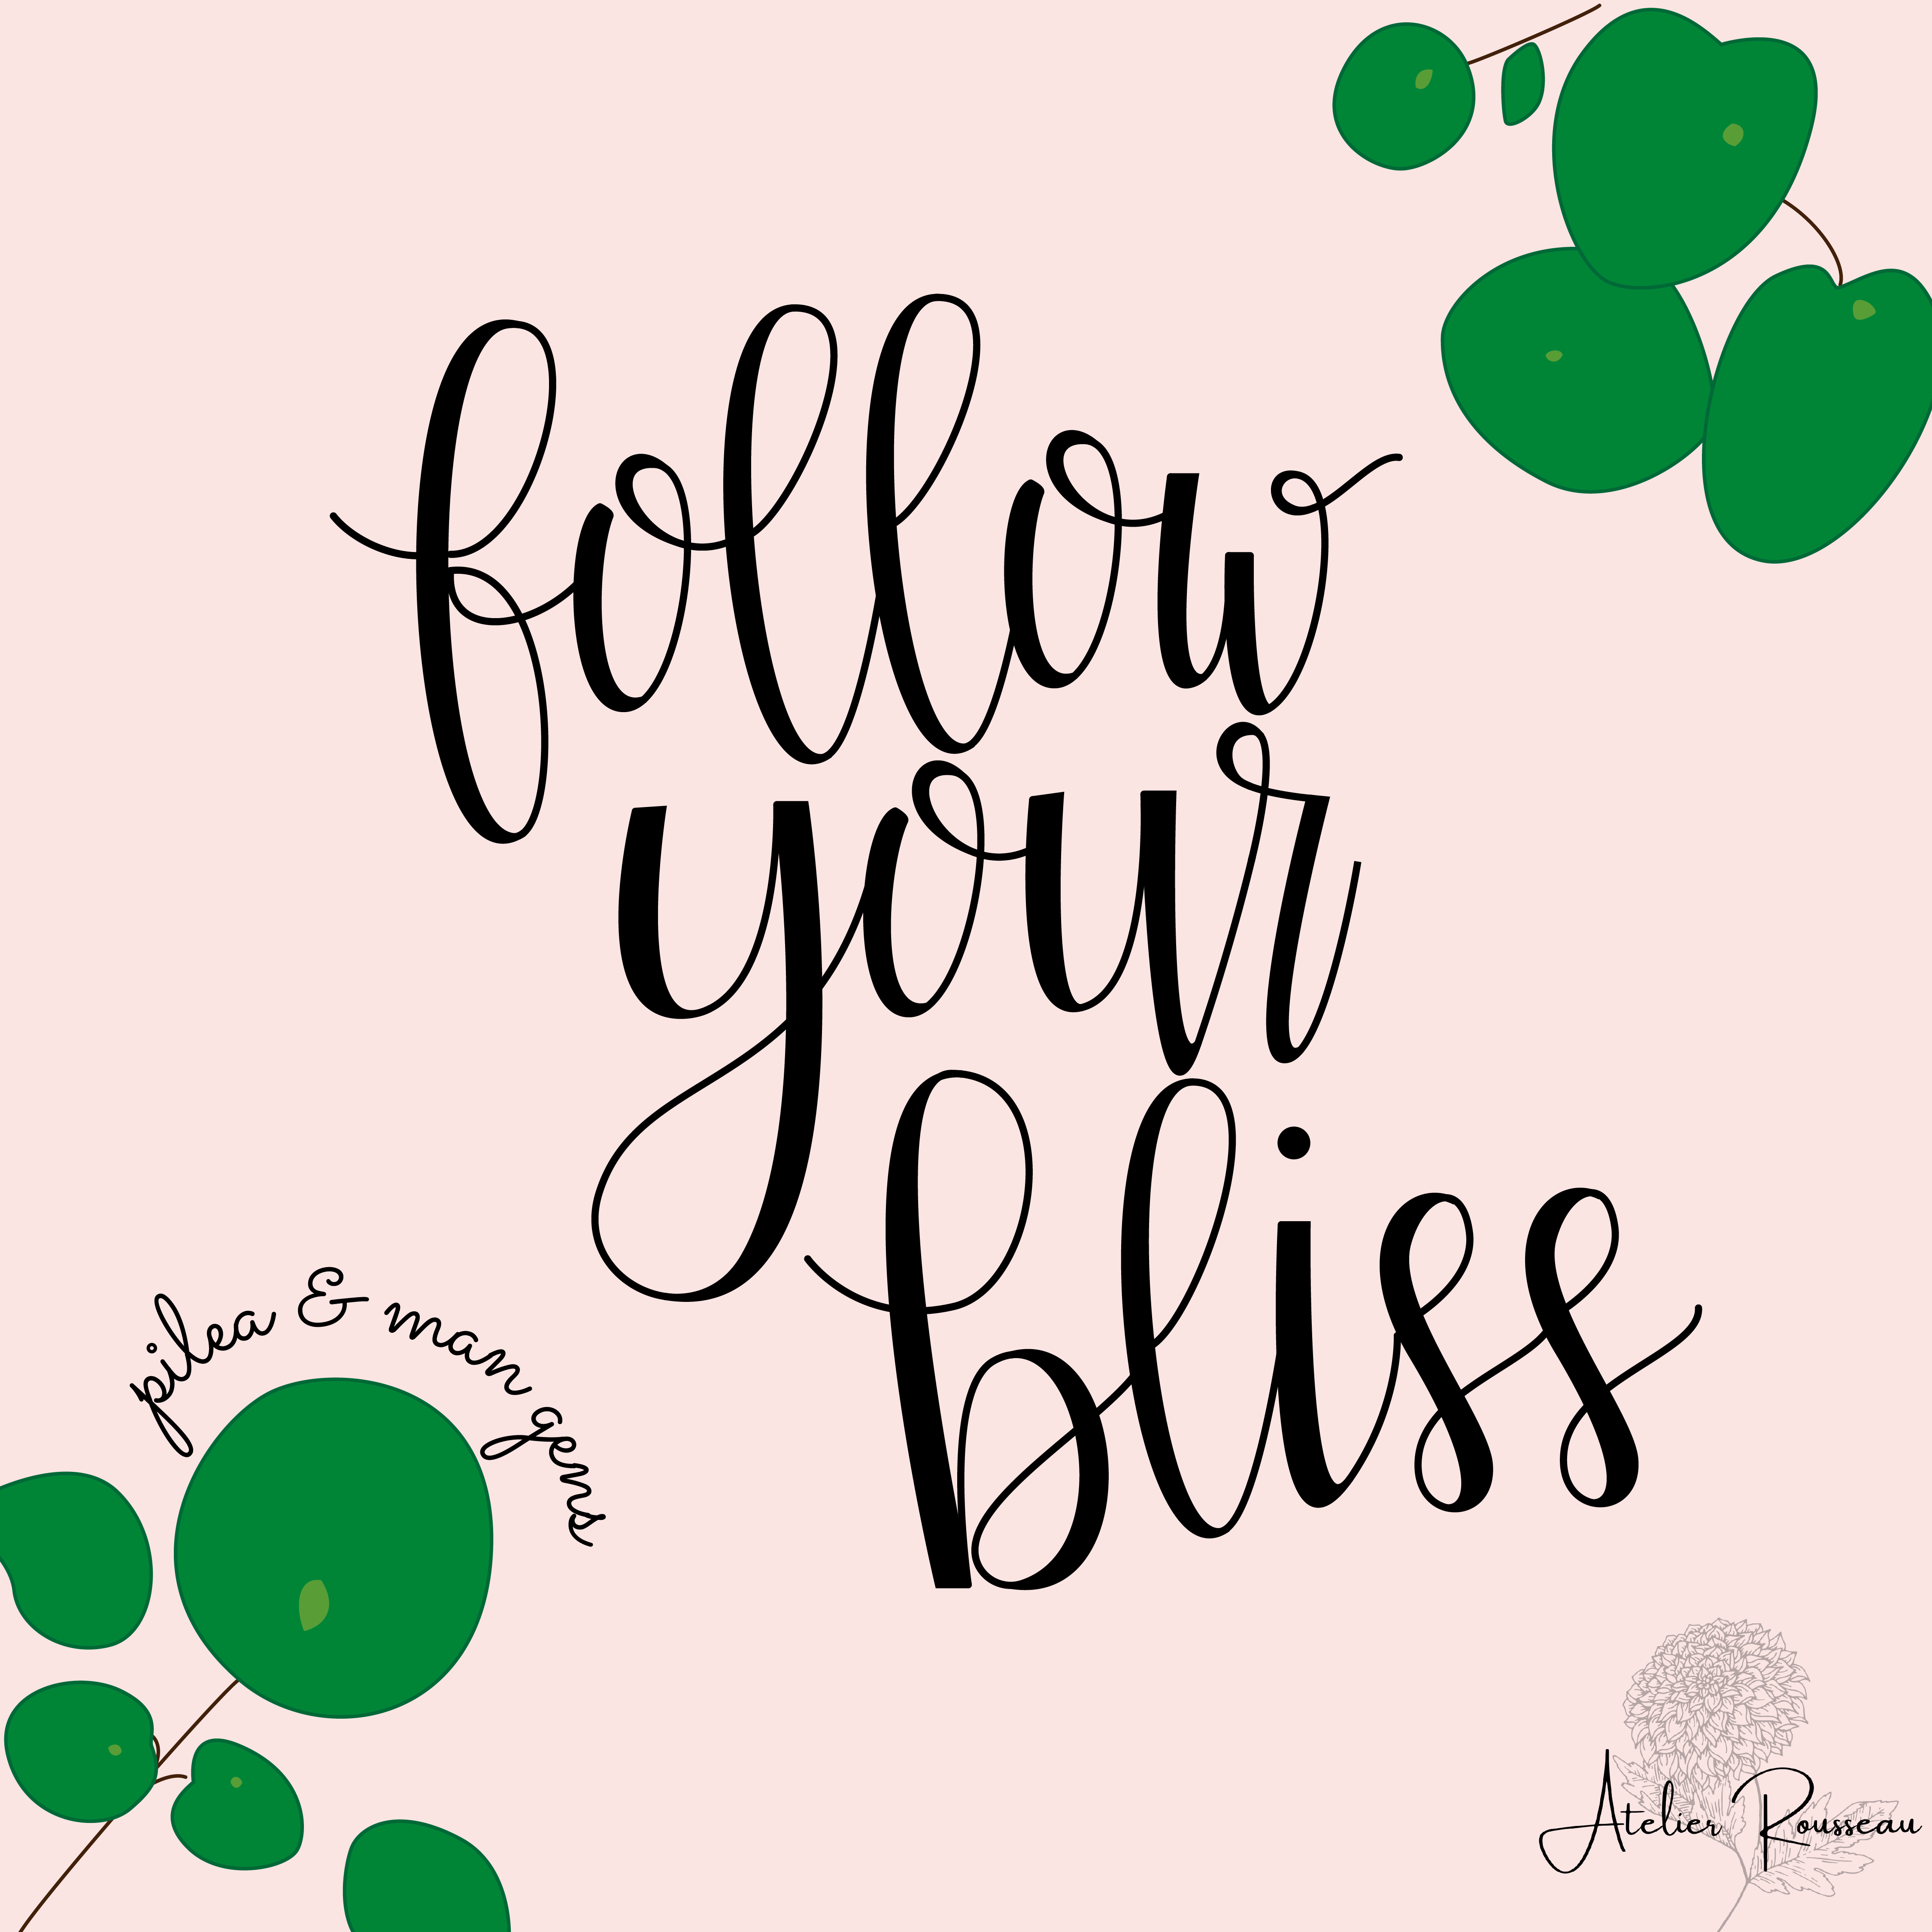 follow
your
bliss
pilea & mann gons
Atelier Rousseau